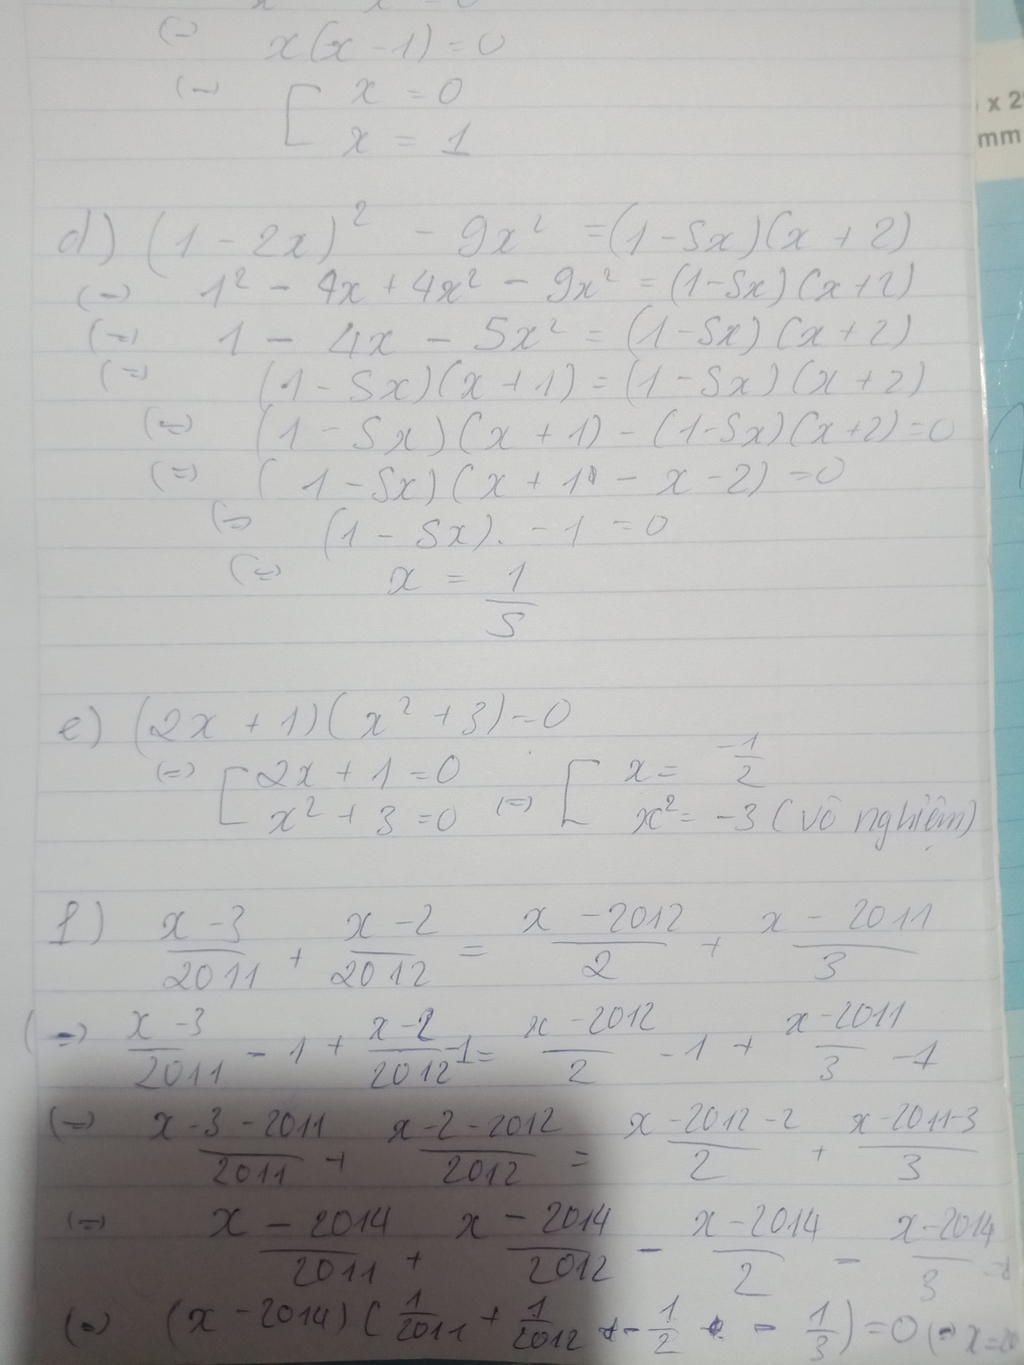 (=) x(x - 1) = 0
(=) [ x = 0
x = 1
x 2
mm
d) (1 - 2x)² - 9x² = (1 - 5x)(x + 2)
(=) 1² - 4x + 4x² - 9x² = (1 - 5x)(x + 2)
(=) 1 - 4x - 5x² = (1 - 5x)(x + 2)
(=) (1 - 5x)(x + 1) = (1 - 5x)(x + 2)
(=) (1 - 5x)(x + 1) - (1 - 5x)(x + 2) = 0
(=) (1 - 5x)(x + 1 - x - 2) = 0
(=) (1 - 5x). - 1 = 0
(=) x = 1/5
e) (2x + 1)(x² + 3) = 0
(=) [ 2x + 1 = 0 (=) [ x = -1/2
x² + 3 = 0 x² = -3 (vô nghiệm)
f) (x - 3)/2011 + (x - 2)/2012 = (x - 2012)/2 + (x - 2011)/3
(=) (x - 3)/2011 - 1 + (x - 2)/2012 - 1 = (x - 2012)/2 - 1 + (x - 2011)/3 - 1
(=) (x - 3 - 2011)/2011 + (x - 2 - 2012)/2012 = (x - 2012 - 2)/2 + (x - 2011 - 3)/3
(=) (x - 2014)/2011 + (x - 2014)/2012 - (x - 2014)/2 - (x - 2014)/3 =
(=) (x - 2014)(1/2011 + 1/2012 - 1/2 - 1/3) = 0 (=) x = 20